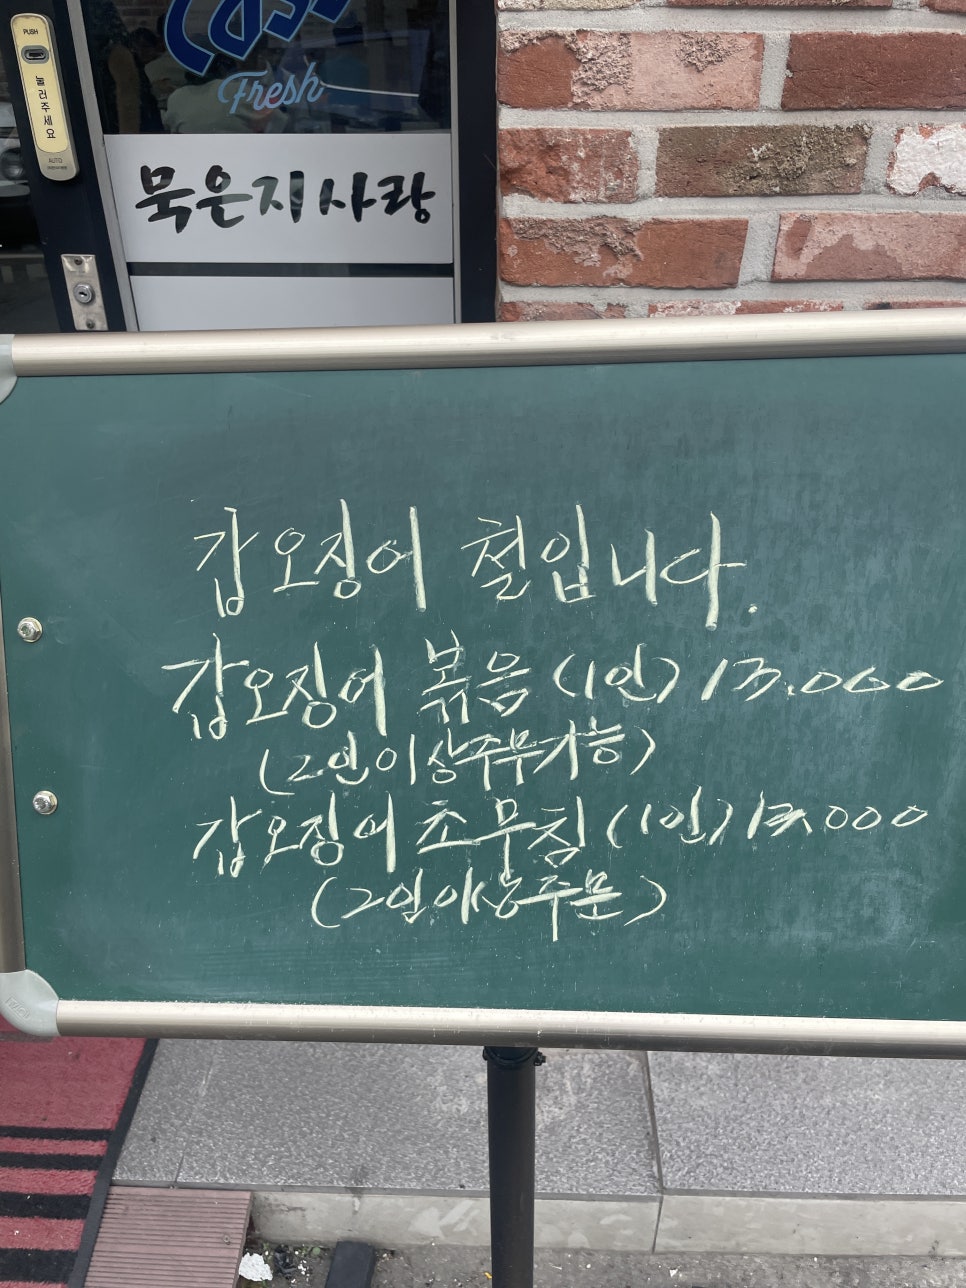 PUSH
눌러주세요
AUTO
Cass
Fresh
묵은지사랑
갑오징어 철입니다.
갑오징어 볶음 (1인) 13.000
(2인이상주문가능)
갑오징어초무침 (1인) 13.000
(2인이상주문)